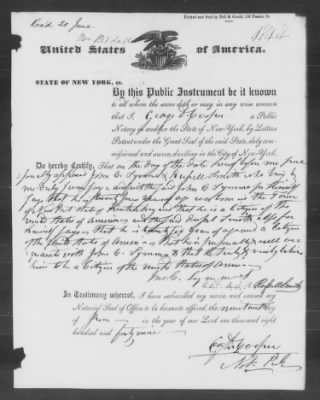 Rec'd 20 June
Printed and Sold by
United States of America.
STATE OF NEW YORK, ss.
By this Public Instrument be it known
to all whom the same doth or may in any wise concern
that I, Cooper a Public
Notary in and for the State of New-York, by Letters
Patent under the Great Seal of the said State, duly com-
missioned and sworn, dwelling in the City of New-York,
Do hereby Certify, That on the Day of the Date hereof before me per-
sonally appeared John C. Symmes & Russell Smith who being by
me duly sworn say and the said John C Symmes for himself
says that he is years of age was born in the Town
of State of Kentucky and that he is a Citizen of the
United States of America and the said Russell Smith also for
himself says that he is years of age and a Citizen
of the United States of America that he is personally well acq-
uainted with John C. Symmes & that he verily believes
him to be a Citizen of the United States of America
Jno. C. Symmes
Russell Smith
In Testimony whereof, I have subscribed my name and caused my
Notarial Seal of Office to be hereunto affixed, the nineteenth day
of June in the year of our Lord one thousand eight
hundred and forty nine
Cooper
Not. Pub.